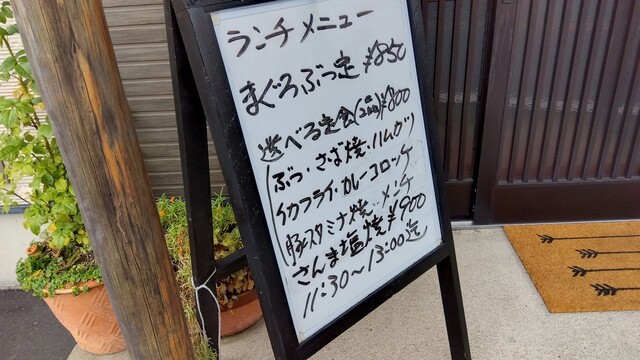 ランチメニュー
まぐろぶつ定 ¥850
選べる定食(2品)¥800
ぶつ・さば焼・ハムカツ
イカフライ・カレーコロッケ
豚スタミナ焼・メンチ
さんま塩焼¥900
11:30~13:00迄